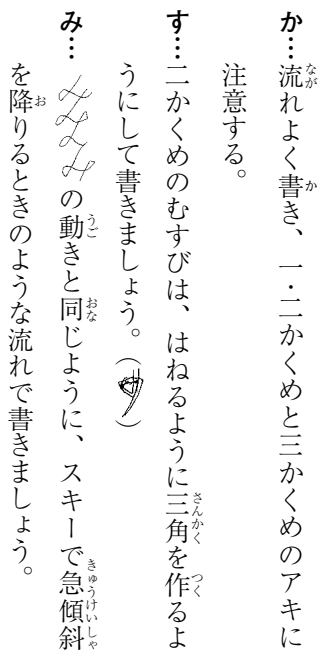 か…流れよく書き、一・二かくめと三かくめのアキに
注意する。
す…二かくめのむすびは、はねるように三角を作るよ
うにして書きましょう。（す）
み…みみみの動きと同じように、スキーで急傾斜
を降りるときのような流れで書きましょう。